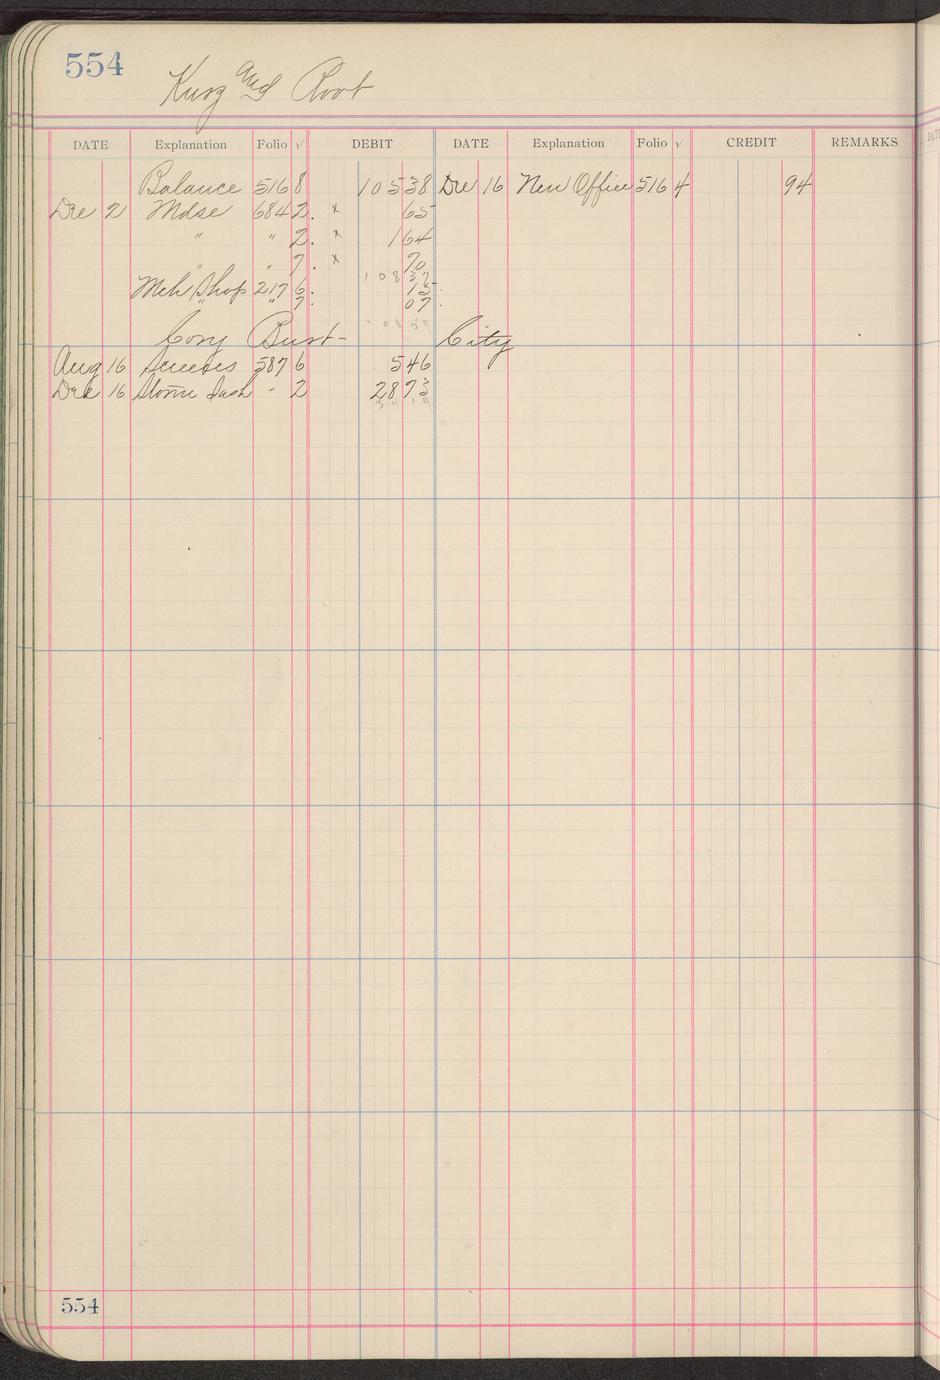 554
Kurz and Root
DATE Explanation Folio √ DEBIT DATE Explanation Folio √ CREDIT REMARKS
Balance 516 8 105 38 Dec 16 New Office 516 4 94
Dec 2 Mdse 684 2. x 65
" " 2. x 1 64
" " 7. x 70
108 37
Mch Shop 217 6. 15
" " 7. 07
108 59
Cory Burt- City
Aug 16 Screens 587 6 5 46
Dec 16 Storm Sash " 2 28 73
34 19
554